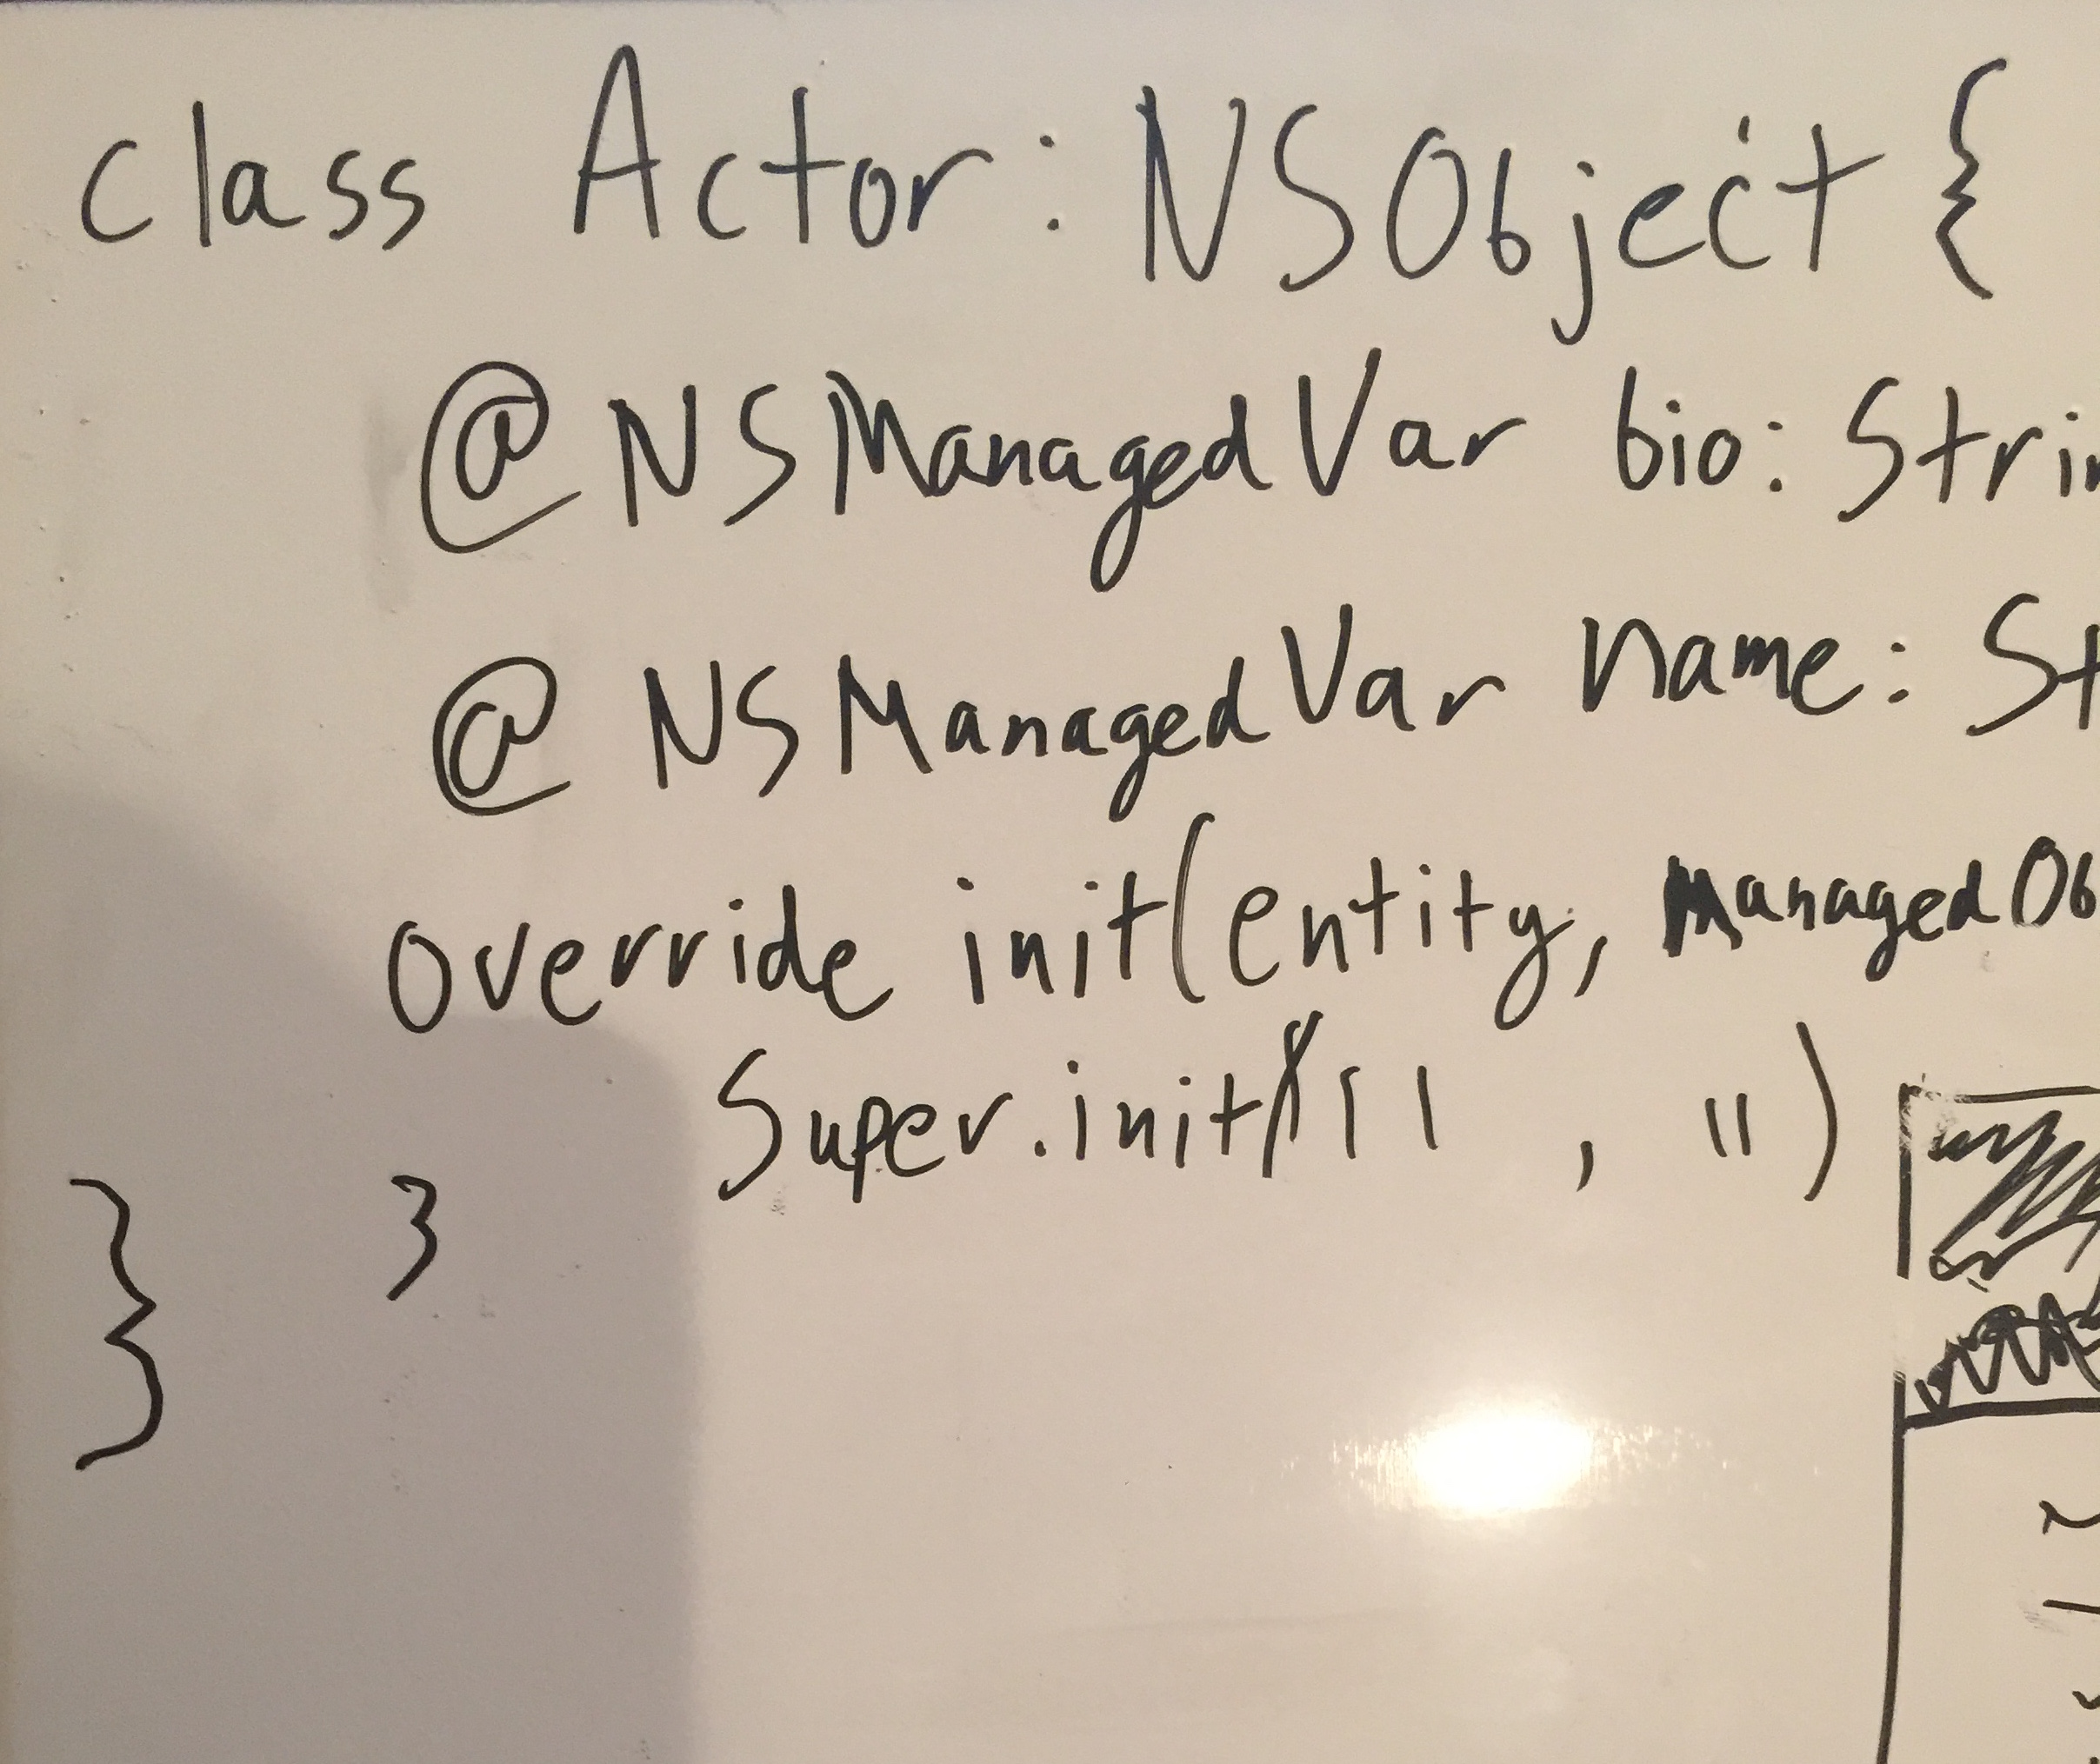 class Actor: NSObject {
@NSManaged Var bio: Strin
@NSManaged Var name: St
override init(entity, managedOb
Super.init(" , ")
}
}